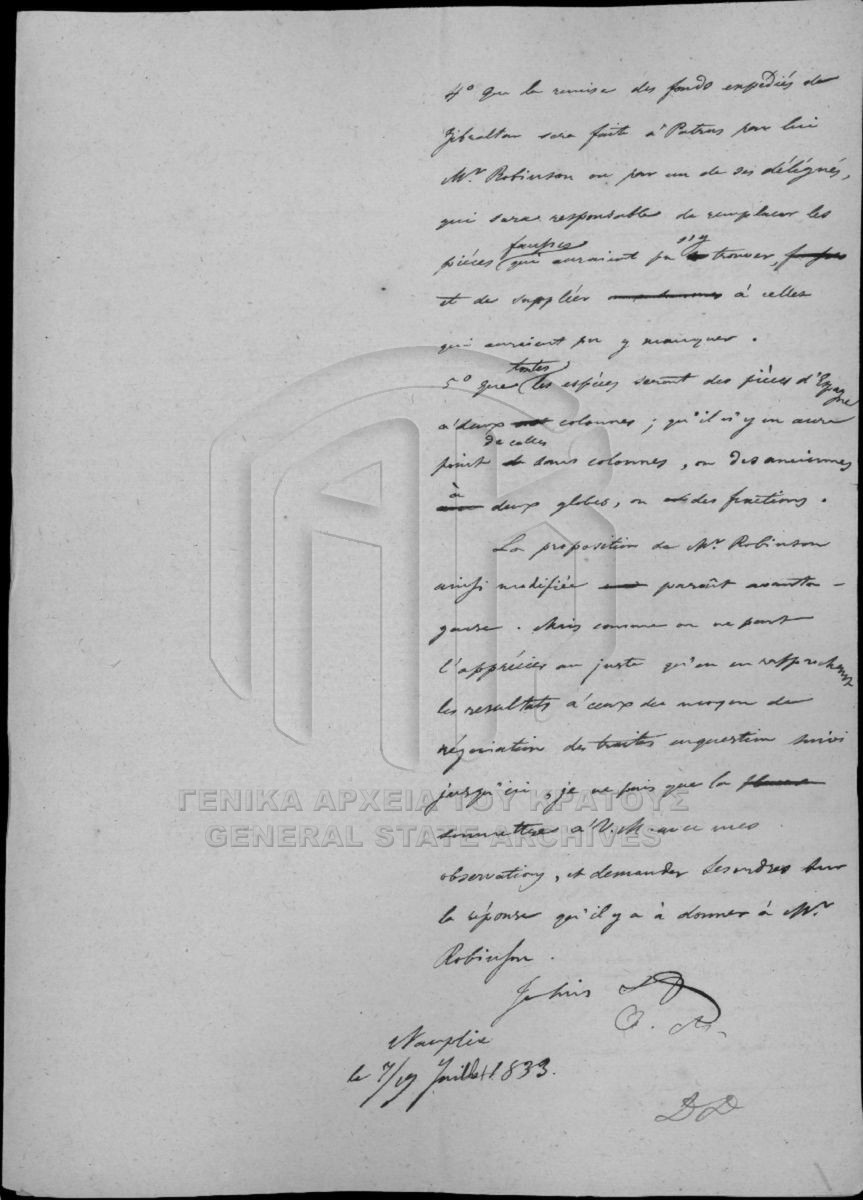 4º que la remise des fonds expédiés de
Gibraltar sera faite à Patras par lui
Mr. Robinson ou par un de ses délégués,
qui sera responsable de remplacer les
pièces fausses qui auraient pu s'y trouver,
et de suppléer à celles
qui auraient pu y manquer.
5º que toutes les espèces seront des pièces d'Espagne
à deux colonnes; qu'il n'y en aura
point de celles sans colonnes, ou des anciennes
à deux globes, ou des fractions.
La proposition de Mr. Robinson
ainsi modifiée paroît avanta-
geuse. Mais comme on ne peut
l'apprécier au juste qu'en en rapprochant
les resultats à ceux du moyen de
négociation des traites en question suivi
jusqu'ici, je ne puis que la
soumettre à V. M. avec mes
observations, et demander Ses ordres sur
la réponse qu'il y a à donner à Mr.
Robinson.
Je suis
Nauplie
le 7/19 Juillet 1833.
ΓΕΝΙΚΑ ΑΡΧΕΙΑ ΤΟΥ ΚΡΑΤΟΥΣ
GENERAL STATE ARCHIVES